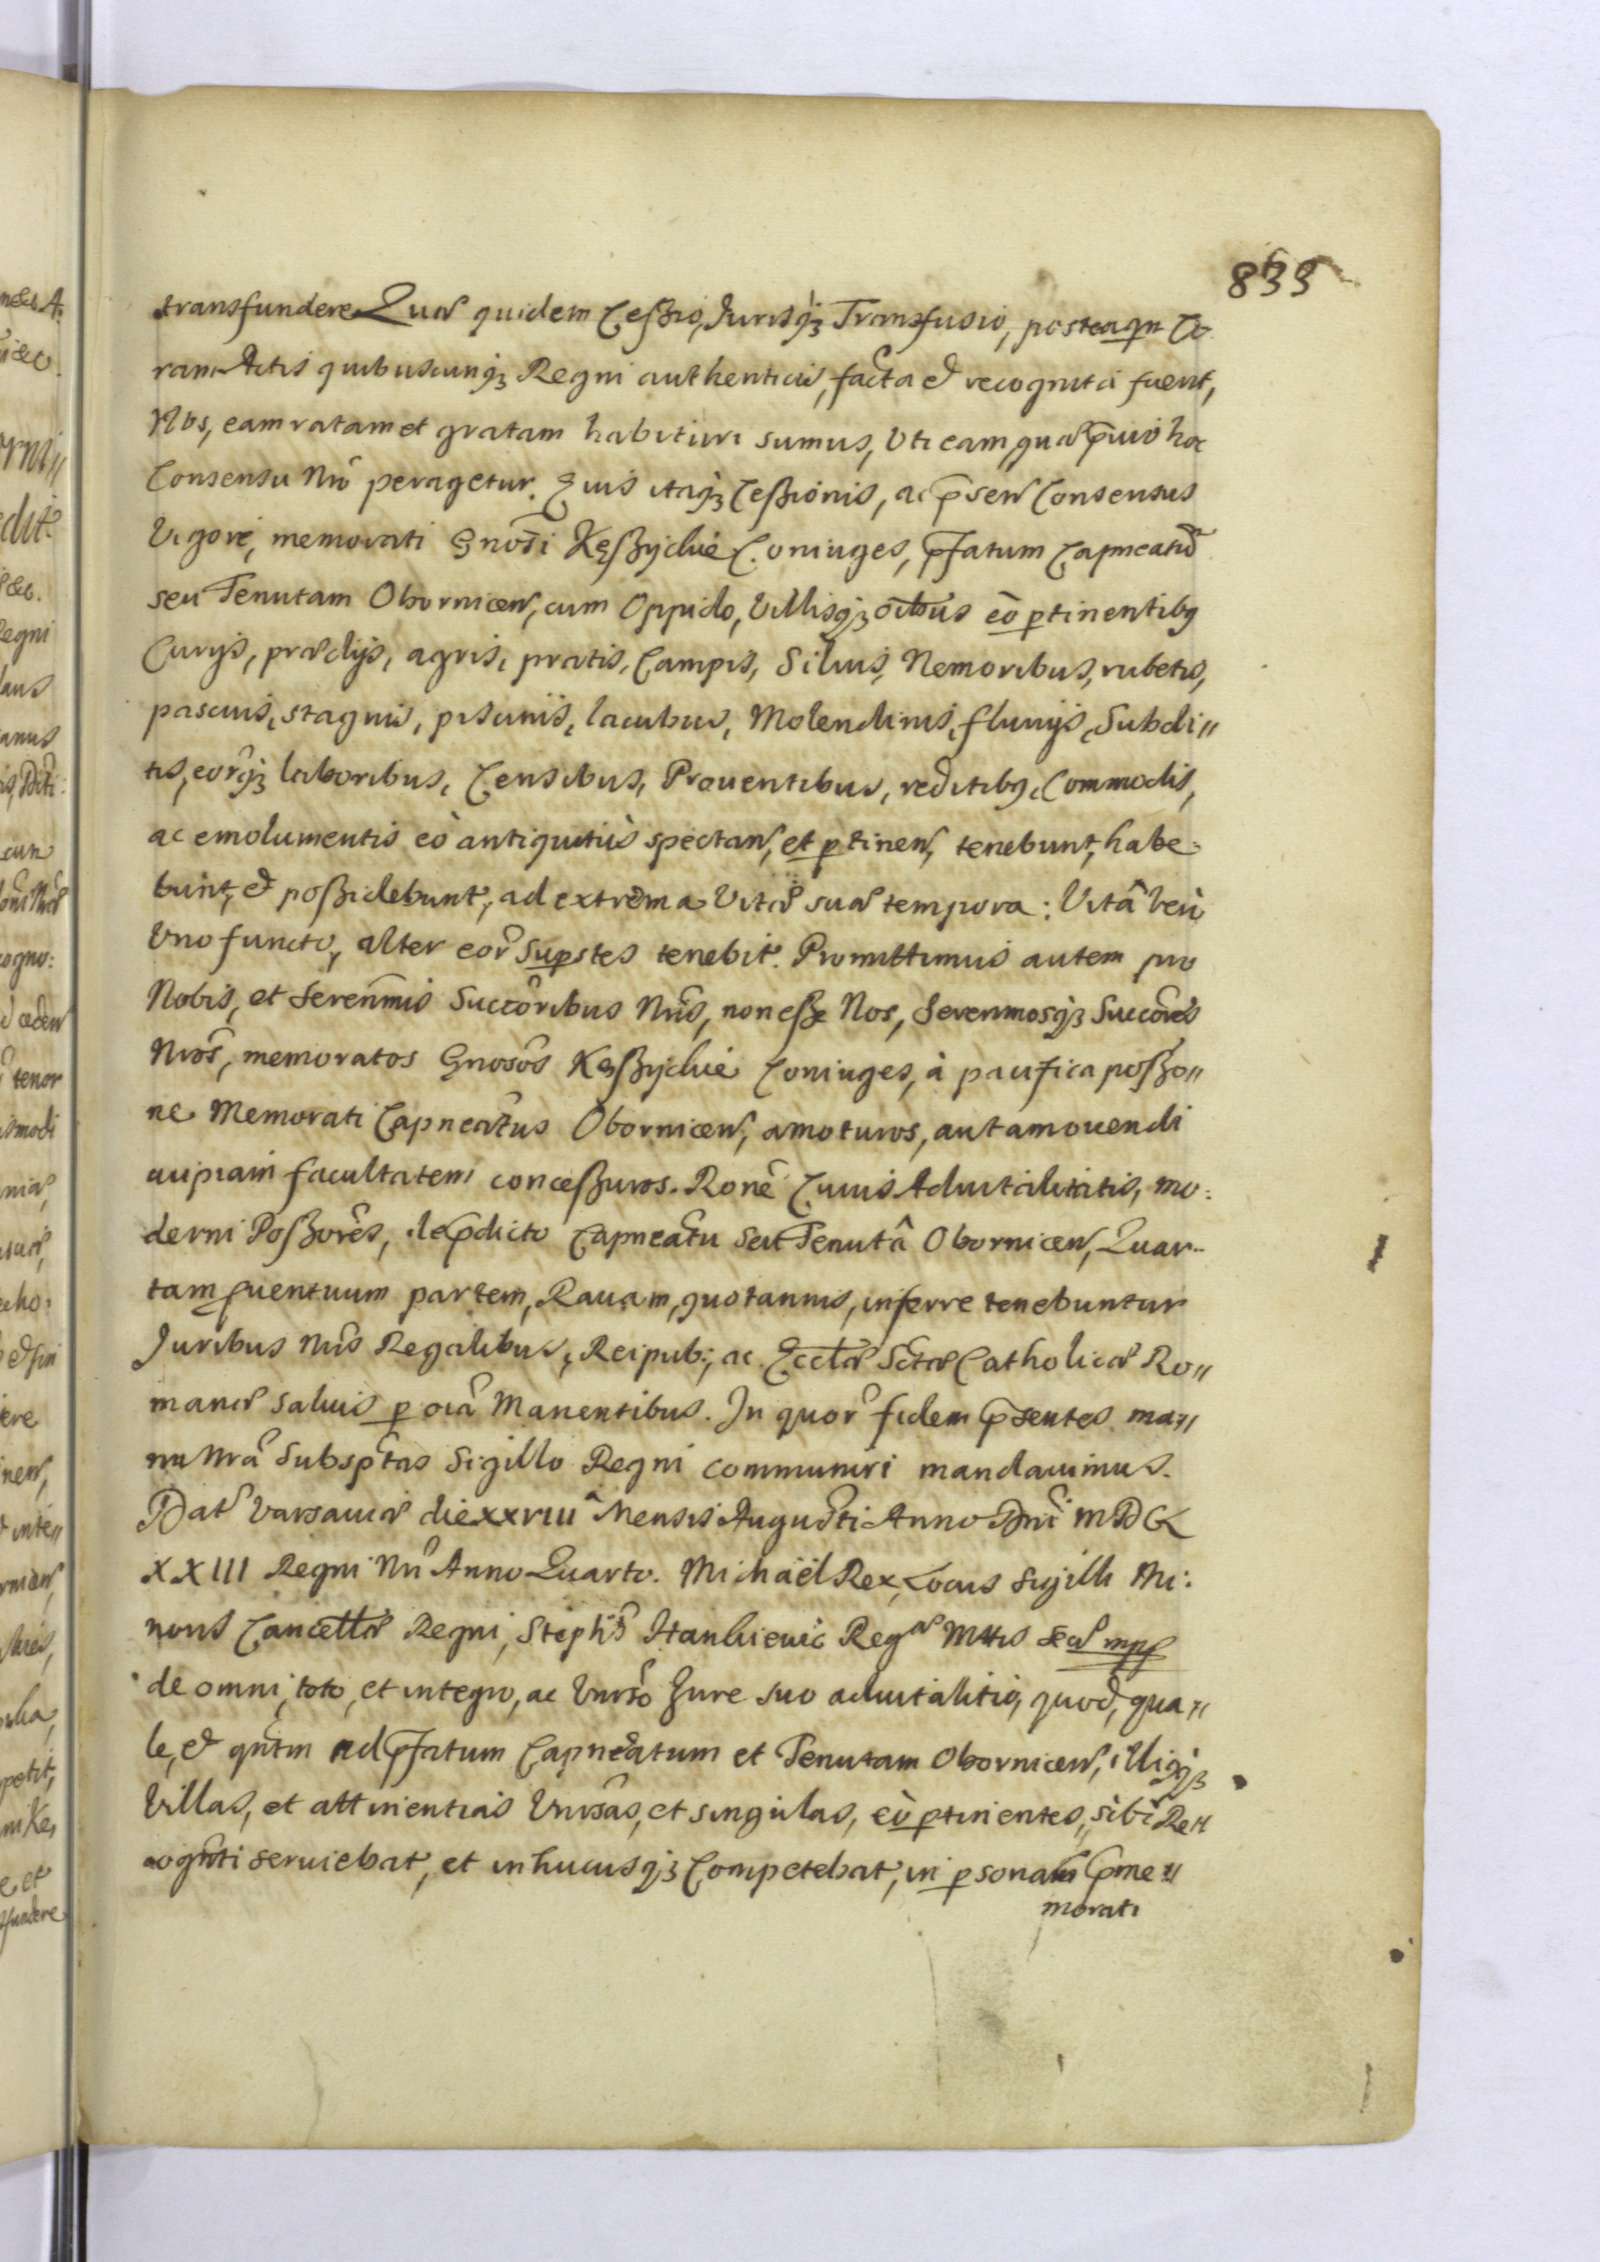 835
transfundere Quæ quidem Cessio, Jurisq3 Transfusio, posteaqm Co
ram Actis quibuscunq3 Regni authenticis, facta et recognita fuerit,
Nos, eam ratam et gratam habituri sumus, Uti eam, quæ pruio hoc
Consensu Nro peragetur. Ejus itaq3 Cessionis, ac prsen Consensus
Vigore, memorati Gnosi Kęszyckie Coniuges, prfatum Capneatũ
seu Tenutam Obornicen, cum Oppido, Villisq3 oibus eò ptinentibq
Curijs, prædijs, agris, pratis, Campis, Siluis, Nemoribus, rubetis,
pascuis, stagnis, piscinis, lacubus, Molendinis, fluuijs, Subdi〃
tis, eorq3 laboribus, Censibus, Prouentibus, reditibq, Commodis,
ac emolumentis eò antiquitùs spectan, et ptinen, tenebunt, habe:
bunt, et possidebunt, ad extrema Vitæ suæ tempora: Vitâ verò
Uno functo, alter eor Supstes tenebit. Promittimus autem pro
Nobis, et Serenmis Succoribus Nris, non esse Nos, Serenmosq3 Succores
Nros, memoratos Gnosos Kęszyckie Coniuges, à pacifica posso〃
ne Memorati Capneatus Obornicen, amoturos, aut amouendi
cuipiam facultatem concessuros. Rone Cuius Aduitalitatis, mo:
derni Possores, de prdicto Capneatu seu Tenutâ Obornicen, Quar-
tam prouentuum partem, Rauam, quotannis, inferre tenebuntur
Juribus Nris Regalibus, Reipub:, ac Ecclæ Sctæ Catholicæ Ro〃
manæ saluis p oia Manentibus. In quor fidem prsentes ma〃
nu Nra Subsptas Sigillo Regni communiri mandauimus.
Dat Varsauiæ die XXVIII Mensis Augusti Anno Dni MDC
XXIII Regni Nri Anno Quarto. Michaël Rex, Locus Sigilli Mi:
noris Cancellæ Regni, Stephs Hankiewic Regæ Mttis Secr mpp
de omni, toto, et integro, ac Vnrso Jure suo aduitalitio, quod, qua〃
le, et qntm ad prfatum Capneatum et Tenutam Obornicen, illiqq3
Villas, et attinentias Vnrsas, et singulas, eò ptinentes, sibi Re〃
cognti seruiebat, et in hucusq3 Competebat, in psonam prme〃
morati